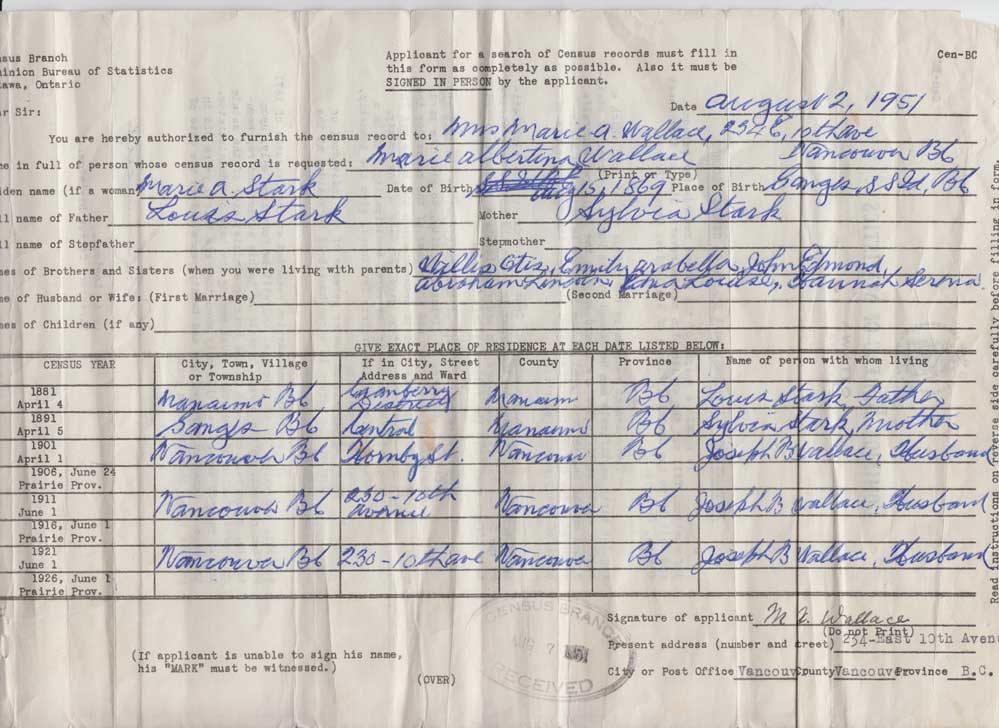 nsus Branch
inion Bureau of Statistics
tawa, Ontario
Applicant for a search of Census records must fill in
this form as completely as possible. Also it must be
SIGNED IN PERSON by the applicant.
Cen-BC
ar Sir:
Date August 2, 1951
You are hereby authorized to furnish the census record to: Mrs Marie A. Wallace, 254 E, 10th ave
me in full of person whose census record is requested: Marie Albertina Wallace Vancouver BC
(Print or Type)
iden name (if a woman) Marie A. Stark Date of Birth 15, 1869 Place of Birth Ganges S. S. Id. BC
ll name of Father Louis Stark Mother Sylvia Stark
ll name of Stepfather Stepmother
mes of Brothers and Sisters (when you were living with parents) Willis Otis, Emily Arabella, John Edmond,
Abraham Lincoln, Louise, Hannah Serena
me of Husband or Wife: (First Marriage) (Second Marriage)
mes of Children (if any)
GIVE EXACT PLACE OF RESIDENCE AT EACH DATE LISTED BELOW:
CENSUS YEAR City, Town, Village or Township If in City, Street Address and Ward County Province Name of person with whom living
1881 April 4 Nanaimo BC Cranberry District Nanaim BC Louis Stark Father
1891 April 5 Ganges BC Central Nanaimo BC Sylvia Stark, Mother
1901 April 1 Vancouver BC Hornby St. Vancouver BC Joseph B Wallace, Husband
1906, June 24 Prairie Prov.
1911 June 1 Vancouver BC 230-10th Avenue Vancouver BC Joseph B Wallace, Husband
1916, June 1 Prairie Prov.
1921 June 1 Vancouver BC 230-10th ave Vancouver BC Joseph B Wallace, Husband
1926, June 1 Prairie Prov.
Read instructions on reverse side carefully before filling in form
CENSUS BRANCH
AUG 7 1951
RECEIVED
Signature of applicant M A. Wallace
(Do not Print)
Present address (number and street) 254-East 10th Aven
City or Post Office Vancouv County Vancouver Province B.C.
(If applicant is unable to sign his name,
his "MARK" must be witnessed.)
(OVER)